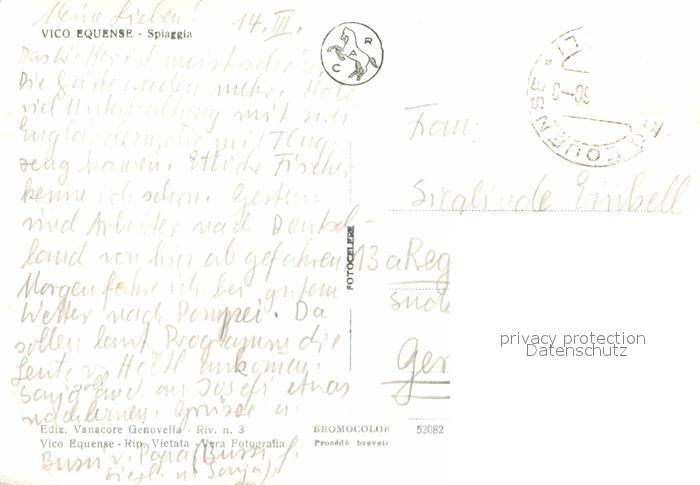 Meine Lieben! 14. III.
VICO EQUENSE - Spiaggia
Das Wetter ist meist schön
Die Gäste werden mehr. Habe
viel Unterhaltung mit zwei
Engländern, die mit Flug-
zeug kamen. Etliche Fischer
kenne ich schon. Gestern
sind Arbeiter nach Deutsch-
land von hier abgefahren
Morgen fahre ich bei gutem
Wetter nach Pompei. Da
sollen laut Programm die
Leute v. ankommen.
Sonja soll und an Josefi etwas
nachlernen. Grüsse u.
Ediz. Vanacore Genoveffa - Riv. n. 3
Vico Equense - Rip. Vietata - Vera Fotografia
Bussi v. Papa (Bussi f.
Siegl. u. Sonja)
R A C
FOTOCELERE
BROMOCOLOR 52082
Procédé brevet
EQUENSE
Frau
Sieglinde
13 a Reg
Ger
privacy protection
Datenschutz